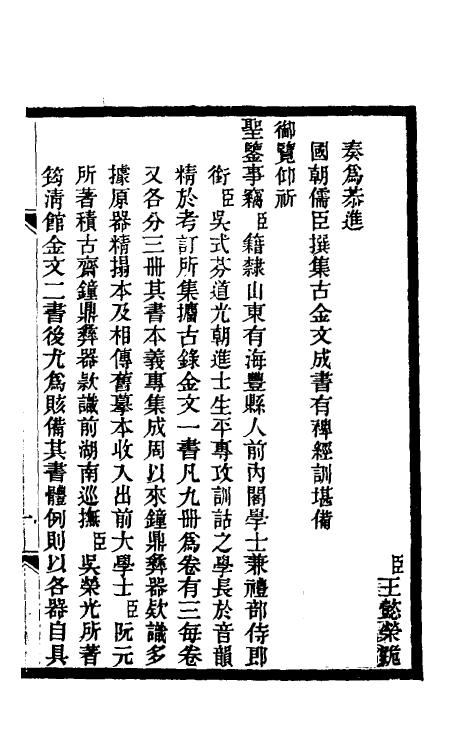 臣王懿榮跪
奏爲恭進
國朝儒臣撰集古金文成書有裨經訓堪備
御覽仰祈
聖鑒事竊臣籍隸山東有海豐縣人前內閣學士兼禮部侍郎
銜臣吳式芬道光朝進士生平專攻訓詁之學長於音韻
精於考訂所集攟古錄金文一書凡九冊爲卷有三每卷
又各分三冊其書本義專集成周以來鐘鼎彝器欵識多
據原器精搨本及相傳舊摹本收入出前大學士臣阮元
所著積古齋鐘鼎彝器欵識前湖南巡撫臣吳榮光所著
筠清館金文二書後尤爲賅備其書體例則以各器自具
一